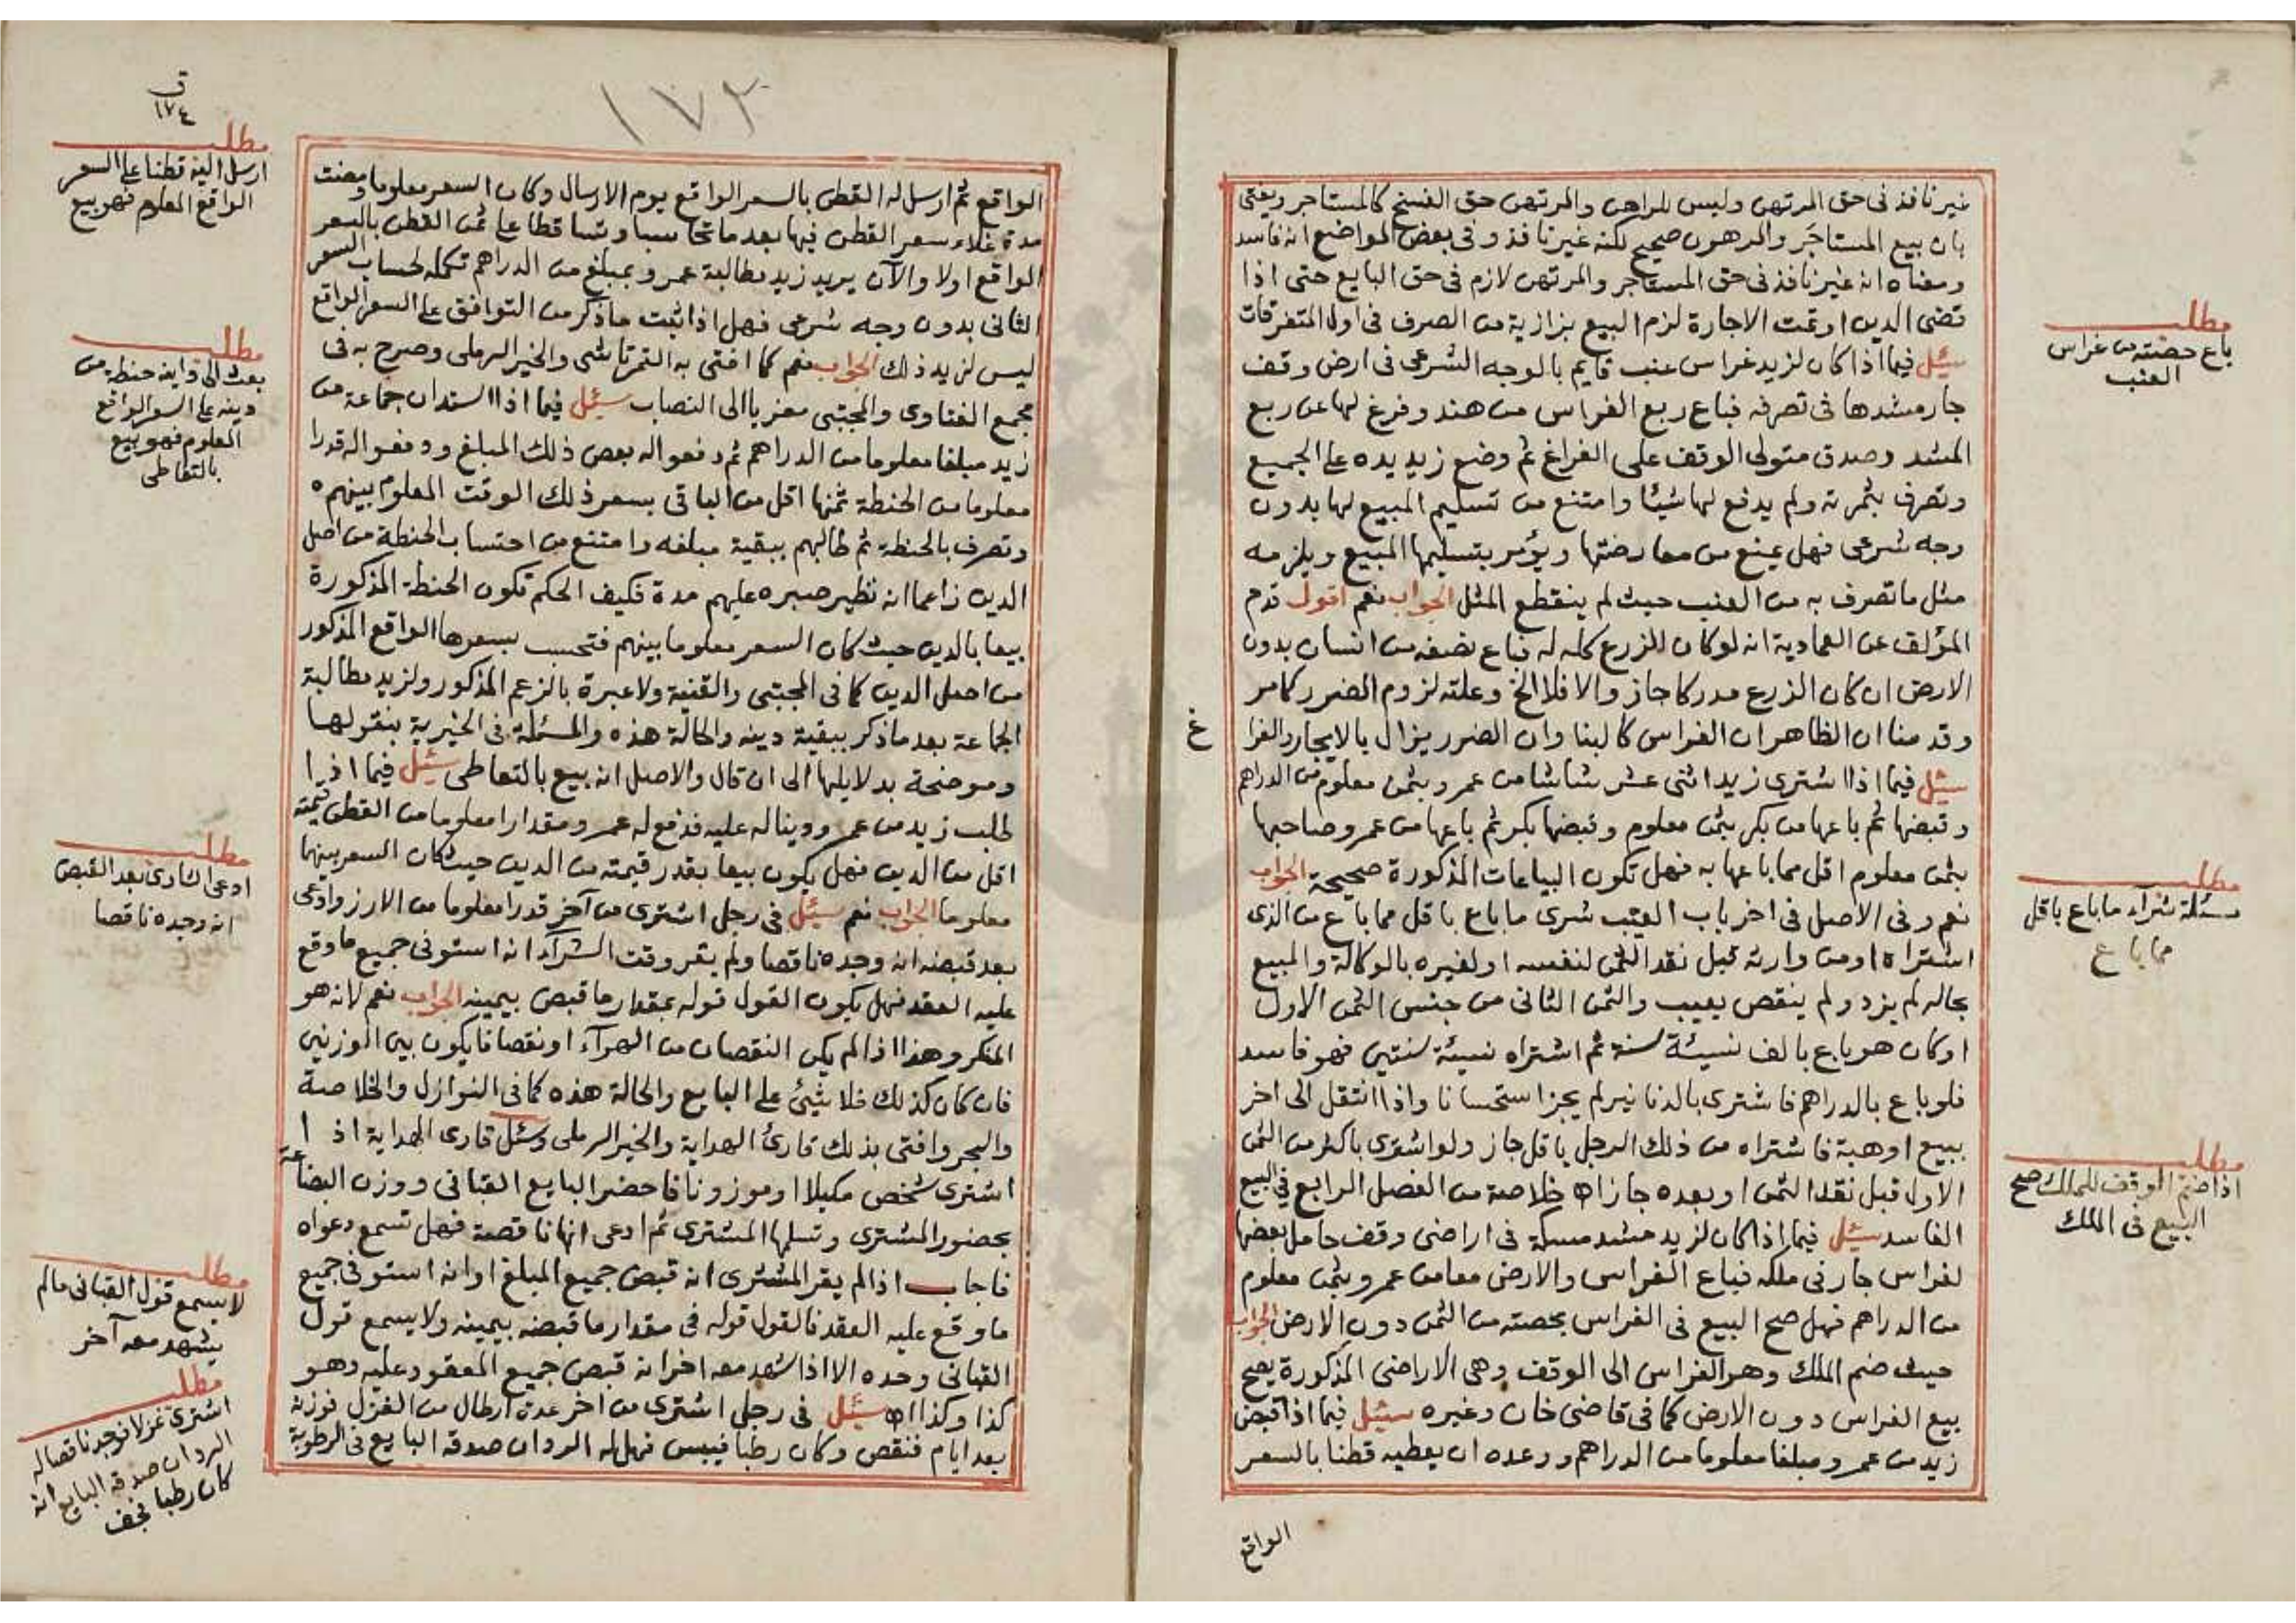 غير نافذ فى حق المرتهن وليس للراهن والمرتهن حق الفسخ كالمستاجر ويفتى
بان بيع المستاجر والمرهون صحيح لكنه غير نافذ وفى بعض المواضع انه فاسد
ومعناه انه غير نافذ فى حق المستاجر والمرتهن لازم فى حق البايع حتى اذا
قضى الدين او تمت الاجارة لزم البيع بزازية من الصرف فى اول المتفرقات
سئل فيما اذا كان لزيد غراس عنب قايم بالوجه الشرعى فى ارض وقف
جار مشدها فى تصرفه فباع ربع الغراس من هند وفرغ لها عن ربع
المشد وصدق متولى الوقف على الفراغ ثم وضع زيد يده على الجميع
وتصرف بثمرته ولم يدفع لها شيئا وامتنع من تسليم المبيع لها بدون
وجه شرعى فهل يمنع من معارضتها ويؤمر بتسليمها المبيع ويلزمه
مثل ما تصرف به من العنب حيث لم ينقطع المثل الجواب نعم اقول قدم
المؤلف عن العمادية انه لو كان الزرع كله له فباع نصفه من انسان بدون
الارض ان كان الزرع مدركا جاز والا فلا الخ وعلته لزوم الضرر كما مر
وقدمنا ان الظاهر ان الغراس كالبنا وان الضرر يزال بالايجار والفرا
غ
سئل فيما اذا اشترى زيد اثنى عشر شاشا من عمرو بثمن معلوم من الدراهم
وقبضها ثم باعها من بكر بثمن معلوم وقبضها بكر ثم باعها من عمرو صاحبها
بثمن معلوم اقل مما باعها به فهل تكون البياعات المذكورة صحيحة الجواب
نعم وفى الاصل فى اخر باب العيب شرى ما باع باقل مما باع من الذى
اشتراه او من وارثه قبل نقد الثمن لنفسه او لغيره بالوكالة والمبيع
بحاله لم يزد ولم ينقص بعيب والثمن الثانى من جنس الثمن الاول
او كان هو باع بالف نسيئة سنة ثم اشتراه نسيئة سنتين فهو فاسد
فلو باع بالدراهم فاشترى بالدنانير لم يجز استحسانا واذا انتقل الى اخر
ببيع او هبة فاشتراه من ذلك الرجل باقل جاز ولو اشترى باكثر من الثمن
الاول قبل نقد الثمن او بعده جاز اه خلاصة من الفصل الرابع فى البيع
الفاسد سئل فيما اذا كان لزيد مشد مسكة فى اراضى وقف حامل بعضها
لغراس جار فى ملكه فباع الغراس والارض معا من عمرو بثمن معلوم
من الدراهم فهل صح البيع فى الغراس بحصته من الثمن دون الارض الجواب
حيث ضم الملك وهو الغراس الى الوقف وهى الاراضى المذكورة يصح
بيع الغراس دون الارض كما فى قاضى خان وغيره سئل فيما اذا قبض
زيد من عمرو مبلغا معلوما من الدراهم ووعده ان يعطيه قطنا بالسعر
الواقع
مطلب
باع حصته من غراس
العنب
مطلب
مسئلة شراء ما باع باقل
مما باع
مطلب
اذا ضم الوقف للملك صح
البيع فى الملك
١٧٣
ق
١٧٤
الواقع ثم ارسل له القطن بالسعر الواقع يوم الارسال وكان السعر معلوما ومضت
مدة غلاء سعر القطن فيها بعد ما تحاسبا وتساقطا على ثمن القطن بالسعر
الواقع اولا والآن يريد زيد مطالبة عمرو بمبلغ من الدراهم تكملة لحساب السعر
الثانى بدون وجه شرعى فهل اذا ثبت ما ذكر من التوافق على السعر الواقع
ليس لزيد ذلك الجواب نعم كما افتى به التمرتاشى والخير الرملى وصرح به فى
مجمع الفتاوى والمجتبى معزيا الى النصاب سئل فيما اذا استدان جماعة من
زيد مبلغا معلوما من الدراهم ثم دفعوا له بعض ذلك المبلغ ودفعوا له قدرا
معلوما من الحنطة ثمنها اقل من الباقى بسعر ذلك الوقت المعلوم بينهم
وتصرف بالحنطة ثم طالبهم ببقية مبلغه وامتنع من احتساب الحنطة من اصل
الدين زاعما انه نظير صبره عليهم مدة فكيف الحكم تكون الحنطة المذكورة
بيعا بالدين حيث كان السعر معلوما بينهم فتحسب بسعرها الواقع المذكور
من اصل الدين كما فى المجتبى والقنية ولا عبرة بالزعم المذكور ولزيد مطالبة
الجماعة بعد ما ذكر ببقية دينه والحالة هذه والمسئلة فى الخيرية بنقولها
وموضحة بدلايلها الى ان قال والاصل انه بيع بالتعاطى سئل فيما اذا
طلب زيد من عمرو دينا له عليه فدفع له عمرو مقدارا معلوما من القطن قيمته
اقل من الدين فهل يكون بيعا بقدر قيمته من الدين حيث كان السعر بينهما
معلوما الجواب نعم سئل فى رجل اشترى من آخر قدرا معلوما من الارز وادعى
بعد قبضه انه وجده ناقصا ولم يقر وقت الشرآء انه استوفى جميع ما وقع
عليه العقد فهل يكون القول قوله بمقدار ما قبض بيمينه الجواب نعم لانه هو
المنكر وهذا اذا لم يكن النقصان من الهوآء او نقصانا يكون بين الوزنين
فان كان كذلك فلا شئ على البايع والحالة هذه كما فى النوازل والخلاصة
والبحر وافتى بذلك قارئ الهداية والخير الرملى وسئل قارى الهداية اذا
اشترى شخص مكيلا او موزونا فاحضر البايع القبانى ووزن البضاعة
بحضور المشترى وتسلمها المشترى ثم ادعى انها ناقصة فهل تسمع دعواه
فاجاب اذا لم يقر المشترى انه قبض جميع المبلغ او انه استوفى جميع
ما وقع عليه العقد فالقول قوله فى مقدار ما قبضه بيمينه ولا يسمع قول
القبانى وحده الا اذا شهد معه اخر انه قبض جميع المعقود عليه وهو
كذا وكذا اه سئل فى رجل اشترى من اخر عدة ارطال من الغزل فوزنه
بعد ايام فنقص وكان رطبا فيبس فهل له الرد ان صدقه البايع فى الرطوبة
مطلب
ارسل اليه قطنا على السعر
الواقع المعلوم فهو بيع
مطلب
بعث الى داينه حنطة من
دينه على السعر الواقع
المعلوم فهو بيع
بالتعاطى
مطلب
ادعى الشارى بعد القبض
انه وجده ناقصا
مطلب
لا يسمع قول القبانى ما لم
يشهد معه آخر
مطلب
اشترى غزلا فوجد ناقصا له
الرد ان صدقه البايع انه
كان رطبا فجف